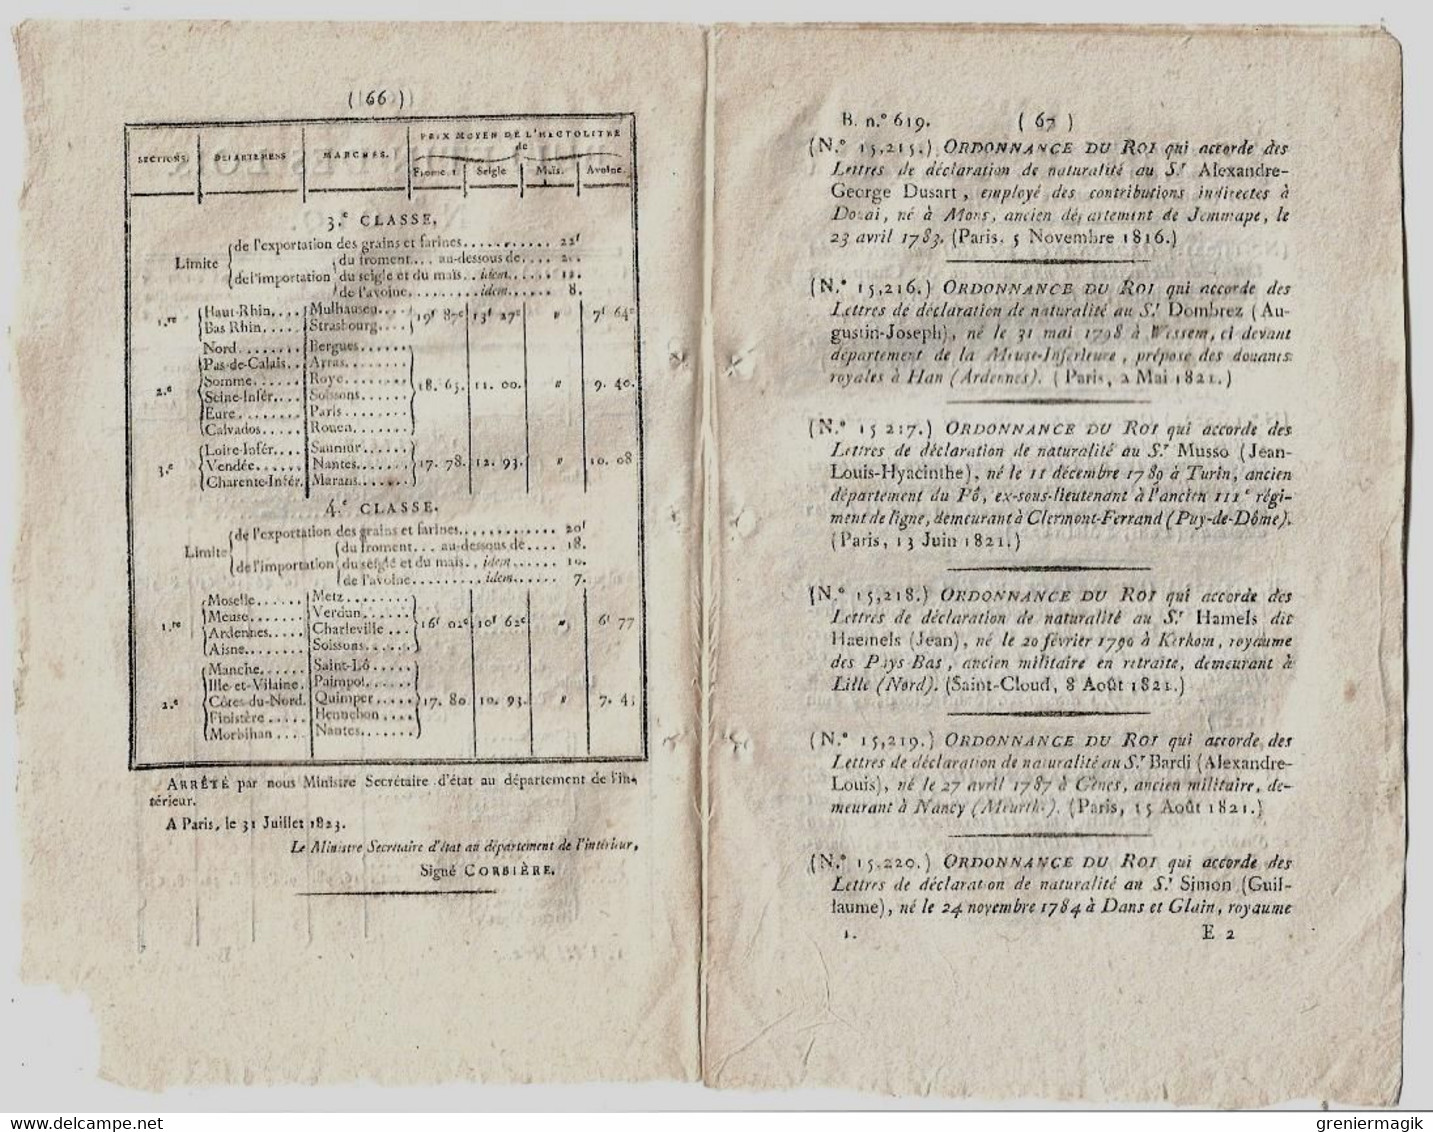 (66)
PRIX MOYEN DE L'HECTOLITRE
de
SECTIONS. DÉPARTEMENS MARCHÉS.
Froment. Seigle Maïs. Avoine.
3.e CLASSE.
Limite
de l'exportation des grains et farines............ 22f
de l'importation
du froment... au-dessous de....
du seigle et du maïs.. idem......
de l'avoine......... idem...... 8.
1.re
Haut-Rhin.... Mulhausen....
Bas Rhin.... Strasbourg....
19f 87c 13f 27c " 7f 64c
2.e
Nord........ Bergues......
Pas-de-Calais.. Arras........
Somme...... Roye........
Seine-Infér.... Soissons......
Eure........ Paris........
Calvados..... Rouen.......
18. 65. 11. 00. " 9. 40.
3.e
Loire-Infér... Saumur......
Vendée...... Nantes......
Charente-Infér. Marans......
17. 78. 12. 93. " 10. 08
4.e CLASSE.
Limite
de l'exportation des grains et farines........... 20f
de l'importation
du froment... au-dessous de.... 18.
du seigle et du maïs.. idem...... 10.
de l'avoine......... idem...... 7.
1.re
Moselle...... Metz........
Meuse...... Verdun......
Ardennes.... Charleville ...
Aisne....... Soissons.....
16f 02c 10f 62c " 6f 77
2.e
Manche..... Saint-Lô.....
Ille-et-Vilaine. Paimpol......
Côtes-du-Nord. Quimper.....
Finistère..... Hennebon ....
Morbihan .... Nantes.......
17. 80 10. 93. " 7. 43
ARRÊTÉ par nous Ministre Secrétaire d'état au département de l'in-
térieur.
A Paris, le 31 Juillet 1823.
Le Ministre Secrétaire d'état au département de l'intérieur,
Signé CORBIÈRE.
B. n.° 619. (67)
(N.° 15,215.) ORDONNANCE DU ROI qui accorde des
Lettres de déclaration de naturalité au S.r Alexandre-
George Dusart, employé des contributions indirectes à
Douai, né à Mons, ancien département de Jemmape, le
23 avril 1783. (Paris, 5 Novembre 1816.)
(N.° 15,216.) ORDONNANCE DU ROI qui accorde des
Lettres de déclaration de naturalité au S.r Dombrez (Au-
gustin-Joseph), né le 31 mai 1798 à Wessem, ci devant
département de la Meuse-Inférieure, préposé des douanes
royales à Han (Ardennes). (Paris, 2 Mai 1821.)
(N.° 15 217.) ORDONNANCE DU ROI qui accorde des
Lettres de déclaration de naturalité au S.r Musso (Jean-
Louis-Hyacinthe), né le 11 décembre 1789 à Turin, ancien
département du Pô, ex-sous-lieutenant à l'ancien 111.e régi-
ment de ligne, demeurant à Clermont-Ferrand (Puy-de-Dôme).
(Paris, 13 Juin 1821.)
(N.° 15,218.) ORDONNANCE DU ROI qui accorde des
Lettres de déclaration de naturalité au S.r Hamels dit
Haemels (Jean), né le 20 février 1790 à Kerkom, royaume
des Pays Bas, ancien militaire en retraite, demeurant à
Lille (Nord). (Saint-Cloud, 8 Août 1821.)
(N.° 15,219.) ORDONNANCE DU ROI qui accorde des
Lettres de déclaration de naturalité au S.r Bardi (Alexandre-
Louis), né le 27 avril 1787 à Gênes, ancien militaire, de-
meurant à Nancy (Meurthe). (Paris, 15 Août 1821.)
(N.° 15,220.) ORDONNANCE DU ROI qui accorde des
Lettres de déclaration de naturalité au S.r Simon (Guil-
laume), né le 24 novembre 1784 à Dans et Glain, royaume
1. E 2
greniermagik